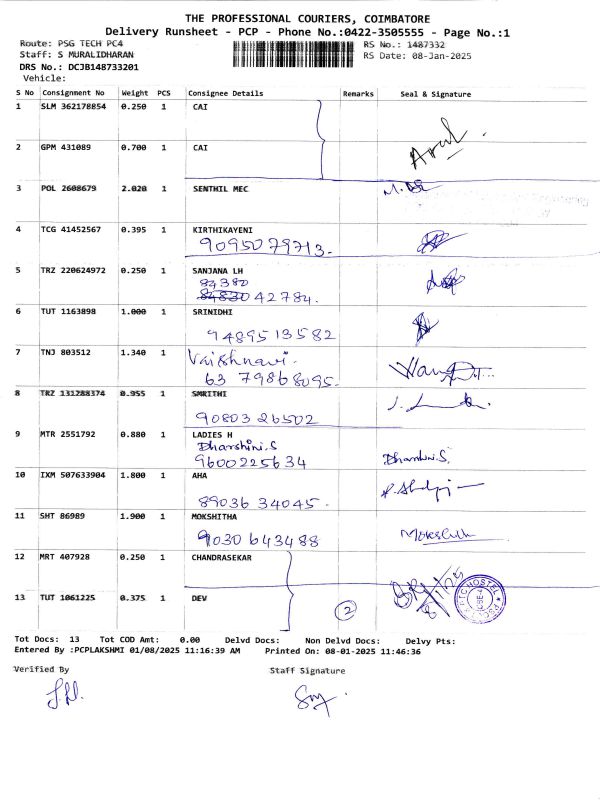 THE PROFESSIONAL COURIERS, COIMBATORE
Delivery Runsheet - PCP - Phone No.:0422-3505555 - Page No.:1
Route: PSG TECH PC4 RS No.: 1487332
Staff: S MURALIDHARAN RS Date: 08-Jan-2025
DRS No.: DCJB148733201
Vehicle:
S No Consignment No Weight PCS Consignee Details Remarks Seal & Signature
1 SLM 362178854 0.250 1 CAI
Arul
2 GPM 431089 0.700 1 CAI
3 POL 2608679 2.020 1 SENTHIL MEC
4 TCG 41452567 0.395 1 KIRTHIKAYENI
9095079713.
5 TRZ 220624972 0.250 1 SANJANA LH
84380
84830 42784.
6 TUT 1163898 1.000 1 SRINIDHI
9489513582
7 TNJ 803512 1.340 1 Vaishnavi.
63 79868095.
8 TRZ 131288374 0.955 1 SMRITHI
90803 26502
9 MTR 2551792 0.880 1 LADIES H
Dharshini.S
9600225634 Dharshini.S.
10 IXM 507633904 1.800 1 AHA
89036 34045.
11 SHT 86989 1.900 1 MOKSHITHA
9030643488
12 MRT 407928 0.250 1 CHANDRASEKAR
13 TUT 1061225 0.375 1 DEV
2 8/1/25
Tot Docs: 13 Tot COD Amt: 0.00 Delvd Docs: Non Delvd Docs: Delvy Pts:
Entered By :PCPLAKSHMI 01/08/2025 11:16:39 AM Printed On: 08-01-2025 11:46:36
Verified By Staff Signature